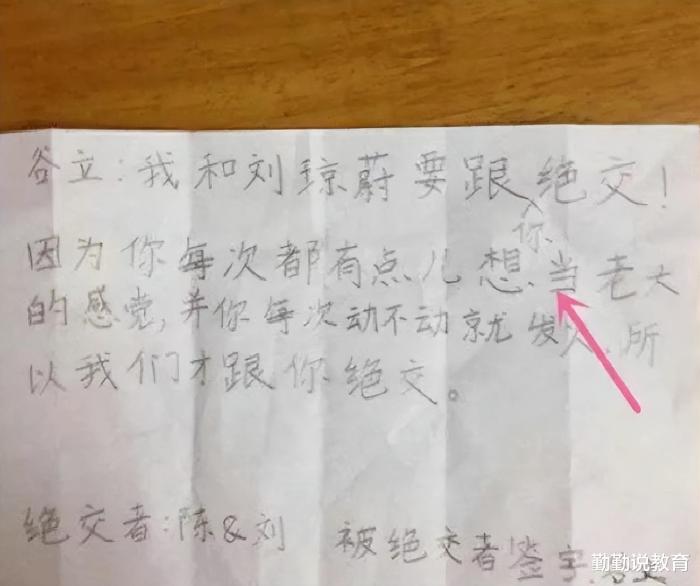 谷立：我和刘琼蔚要跟你绝交！
因为你每次都有点儿想当老大
的感觉，并你每次动不动就发火，所
以我们才跟你绝交。
绝交者：陈&刘 被绝交者签字
勤勤说教育